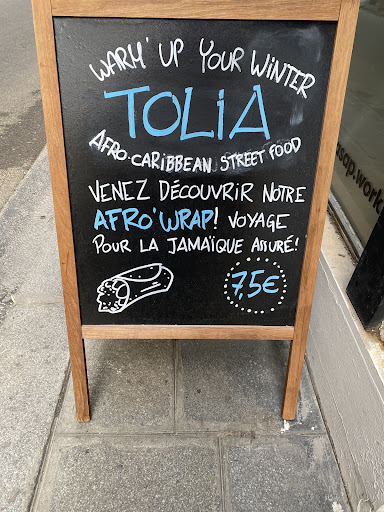 WARM' UP YOUR WINTER
TOLIA
AFRO-CARIBBEAN STREET FOOD
VENEZ DÉCOUVRIR NOTRE
AFRO'WRAP! VOYAGE
POUR LA JAMAÏQUE ASSURÉ!
7,5€